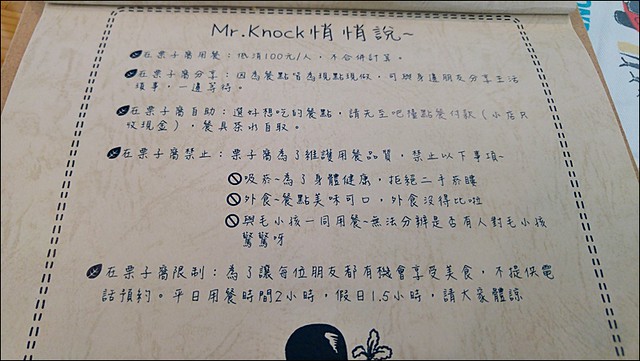 Mr.Knock悄悄說~
在栗子窩用餐：低消100元/人，不合併計算。
在栗子窩分享：因為餐點皆為現點現做，可與身邊朋友分享生活
瑣事，一邊等待。
在栗子窩自助：選好想吃的餐點，請先至吧檯點餐付款（小店只
收現金），餐具茶水自取。
在栗子窩禁止：栗子窩為了維護用餐品質，禁止以下事項~
吸菸~為了身體健康，拒絕二手菸嘍
外食~餐點美味可口，外食沒得比啦
與毛小孩一同用餐~無法分辨是否有人對毛小孩
驚驚呀
在栗子窩限制：為了讓每位朋友都有機會享受美食，不提供電
話預約。平日用餐時間2小時，假日1.5小時，請大家體諒